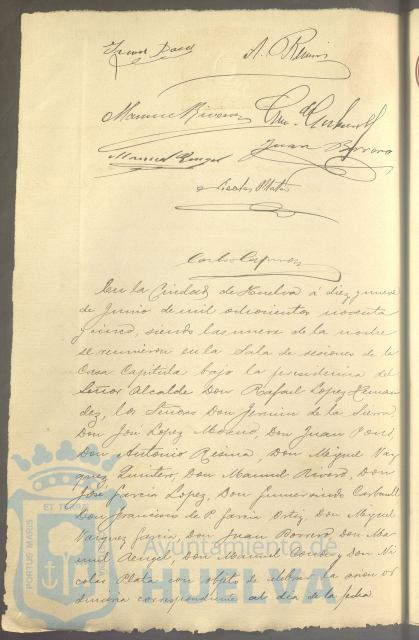 A. Resina
Manuel Rivero
Juan Borrero
Manuel Rengel
Nicolas Plata
En la Ciudad de Huelva á diez y nueve
de Junio de mil ochocientos noventa
y cinco, siendo las nueve de la noche
se reunieron en la Sala de sesiones de la
Casa Capitular bajo la presidencia del
Señor Alcalde Don Rafael Lopez Hernan
dez, los Señores Don Fermin de la Sierra,
Don José Lopez Don Juan
Don Antonio Resina, Don Miguel Vaz
quez Quintero, Don Manuel Rivero, Don
José Garcia Lopez, Don Gumersindo
Don Francisco de P. Garcia Ortiz, Don Miguel
Vazquez Garcia, Don Juan Borrero, Don Ma
nuel Rengel, Don Manuel y Don Ni
colas Plata con objeto de celebrar la sesion or
dinaria correspondiente al dia de la fecha.
ET TERRAE
PORTUS MARIS
Ayuntamiento de
HUELVA